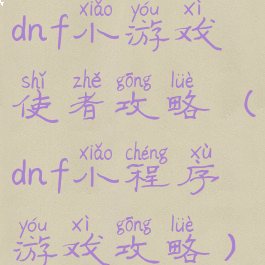 xiǎo yóu xì
dnf小游戏
shǐ zhě gōng lüè
使者攻略（
xiǎo chéng xù
dnf小程序
yóu xì gōng lüè
游戏攻略）